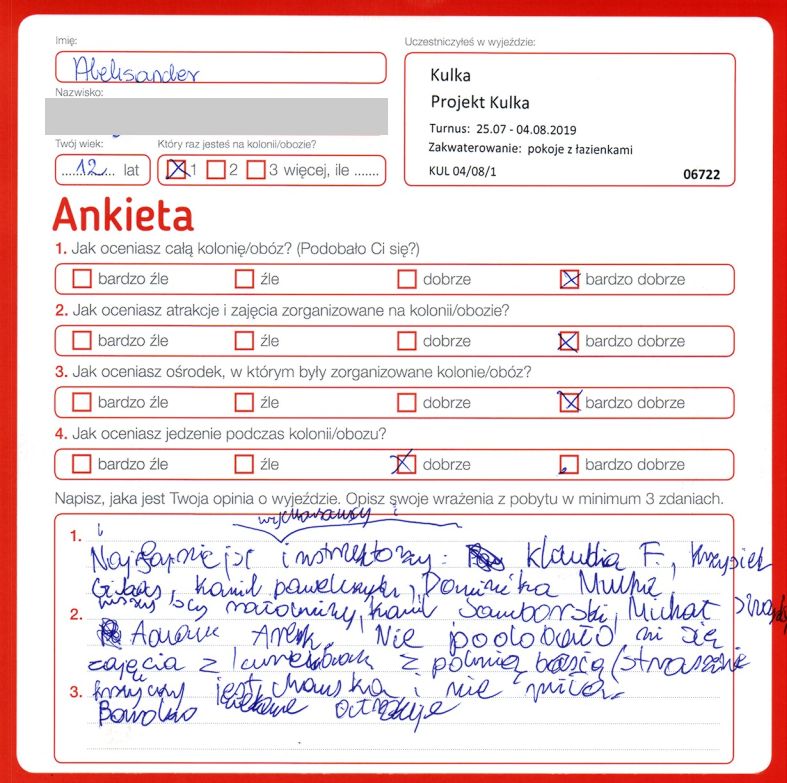 Imię:
Aleksander
Nazwisko:
Twój wiek:
12 lat
Który raz jesteś na kolonii/obozie?
1 2 3 więcej, ile .......
Uczestniczyłeś w wyjeździe:
Kulka
Projekt Kulka
Turnus: 25.07 - 04.08.2019
Zakwaterowanie: pokoje z łazienkami
KUL 04/08/1 06722
Ankieta
1. Jak oceniasz całą kolonię/obóz? (Podobało Ci się?)
bardzo źle źle dobrze bardzo dobrze
2. Jak oceniasz atrakcje i zajęcia zorganizowane na kolonii/obozie?
bardzo źle źle dobrze bardzo dobrze
3. Jak oceniasz ośrodek, w którym były zorganizowane kolonie/obóz?
bardzo źle źle dobrze bardzo dobrze
4. Jak oceniasz jedzenie podczas kolonii/obozu?
bardzo źle źle dobrze bardzo dobrze
Napisz, jaka jest Twoja opinia o wyjeździe. Opisz swoje wrażenia z pobytu w minimum 3 zdaniach.
wychowawcy i
1.
instruktorzy: Klaudia F., Krzysiek
Kamil Dominika
2. ratownicy, Kamil Samborski, Michał
Nie podobało mi się
zajęcia z z panią basią (strasznie
3. jest i nie miła.